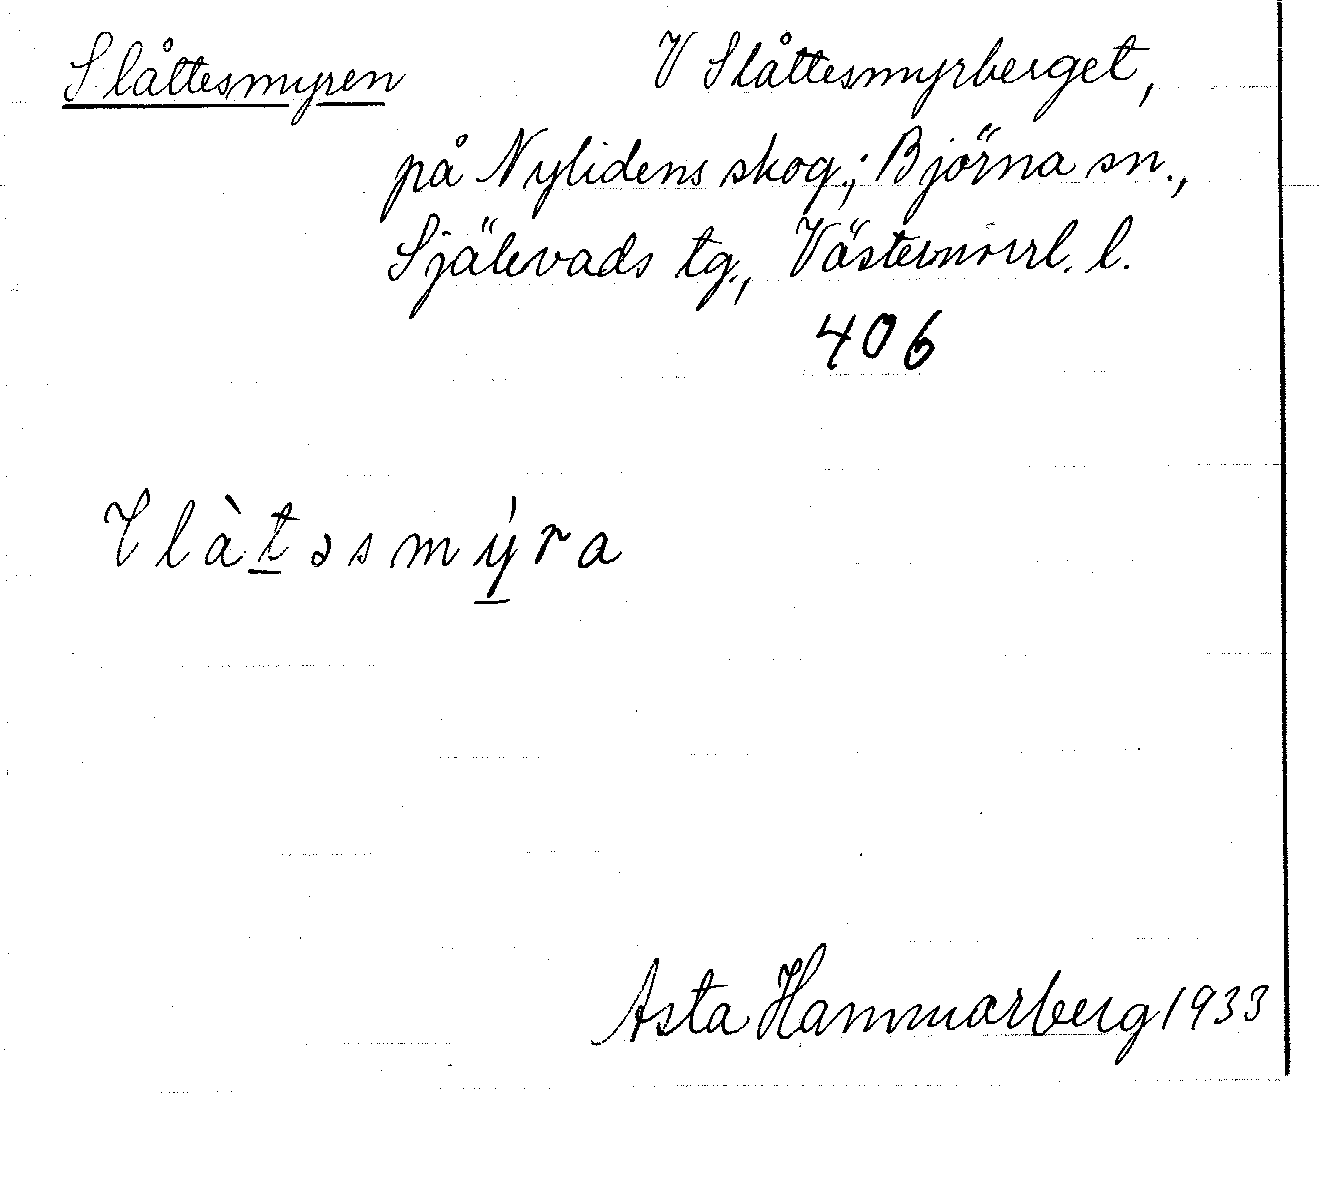 Slåttesmyren V Slåttesmyrberget,
på Nylidens skog; Björna sn.,
Själevads tg., Västernorrl. l.
406
Slàt̲əsmý̲ra
Asta Hammarberg 1933